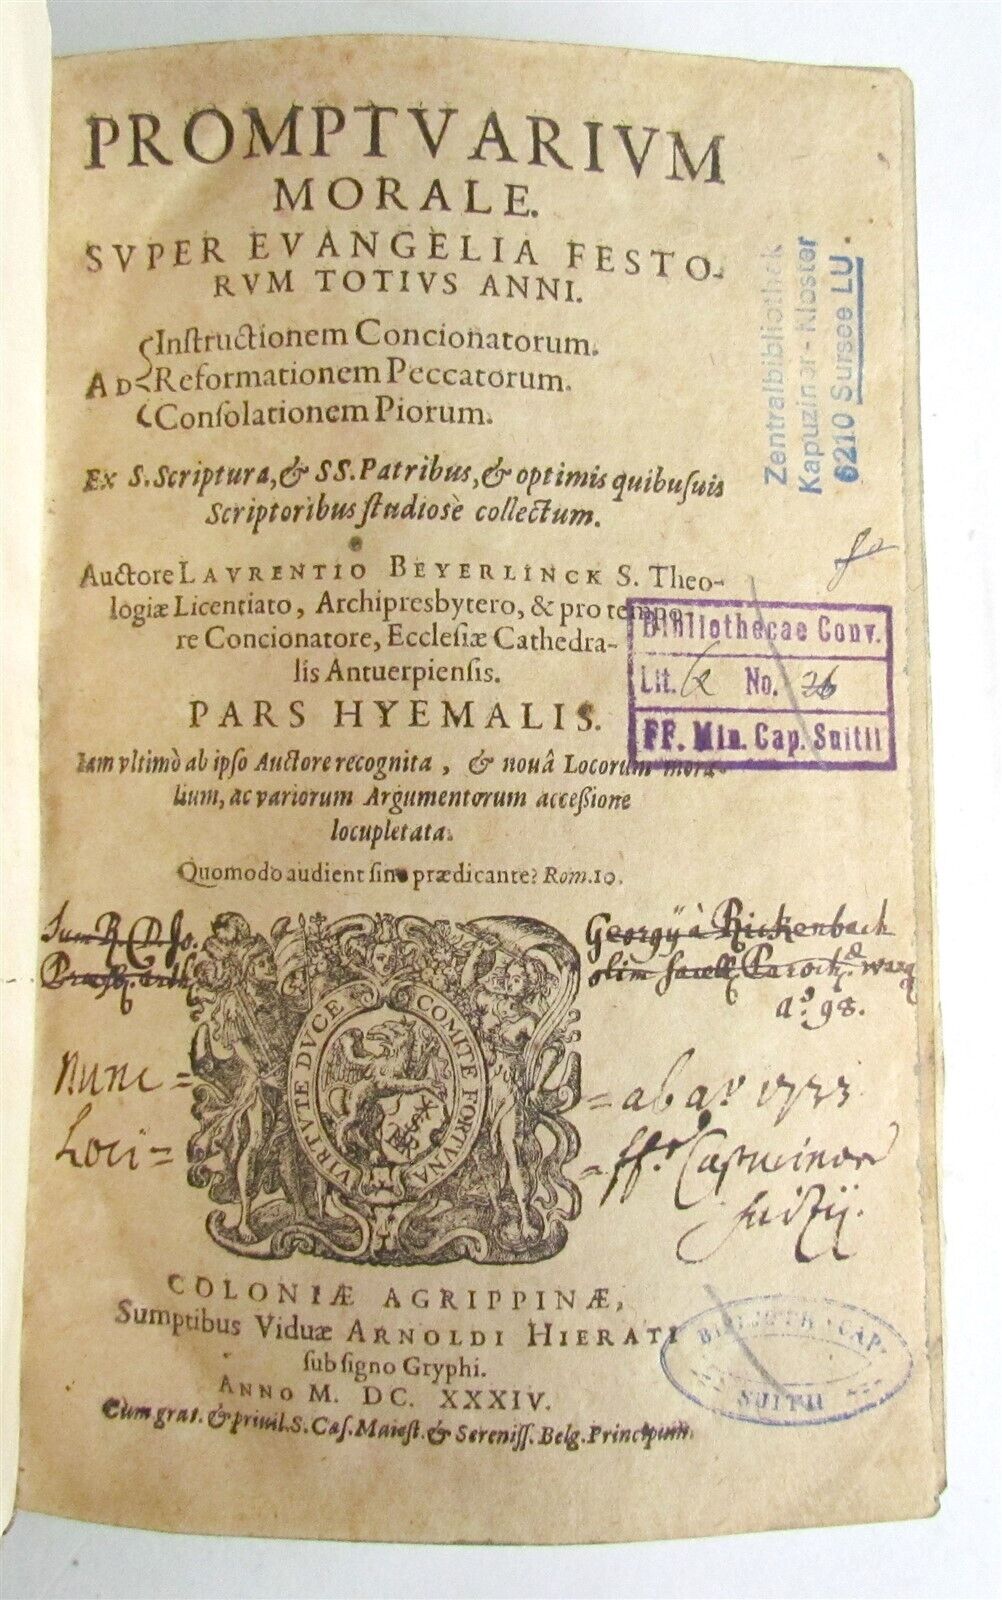 PROMPTVARIVM
MORALE.
SVPER EVANGELIA FESTO-
RVM TOTIVS ANNI.
Inſtructionem Concionatorum.
AD Reformationem Peccatorum.
Conſolationem Piorum.
Ex S. Scriptura, & SS. Patribus, & optimis quibuſuis
Scriptoribus ſtudiosè collectum.
Auctore LAVRENTIO BEYERLINCK S. Theo-
logiæ Licentiato, Archipresbytero, & pro tempo-
re Concionatore, Eccleſiæ Cathedra-
lis Antuerpienſis.
PARS HYEMALIS.
Iam vltimò ab ipſo Auctore recognita, & nouâ Locorum mora-
lium, ac variorum Argumentorum acceſsione
locupletata.
Quomodo audient ſine prædicante? Rom. 10.
Zentralbibliothek
Kapuziner-Kloster
6210 Sursee LU.
Bibliothecae Conv.
Lit. No. 26
FF. Min. Cap. Suitii
Sum R. D. Jo. Georgij à Rickenbach
olim Paroch.
aº 98.
Nunc = = ab aº 1733
Loci = = ff. Capucinor
Suitij.
VIRTVTE DVCE COMITE FORTVNA
COLONIÆ AGRIPPINÆ,
Sumptibus Viduæ ARNOLDI HIERATI
ſub ſigno Gryphi.
ANNO M. DC. XXXIV.
Cum grat. & priuil. S. Cæſ. Maieſt. & Sereniſſ. Belg. Principum.
BIBLIOTH. CAP.
SUITII